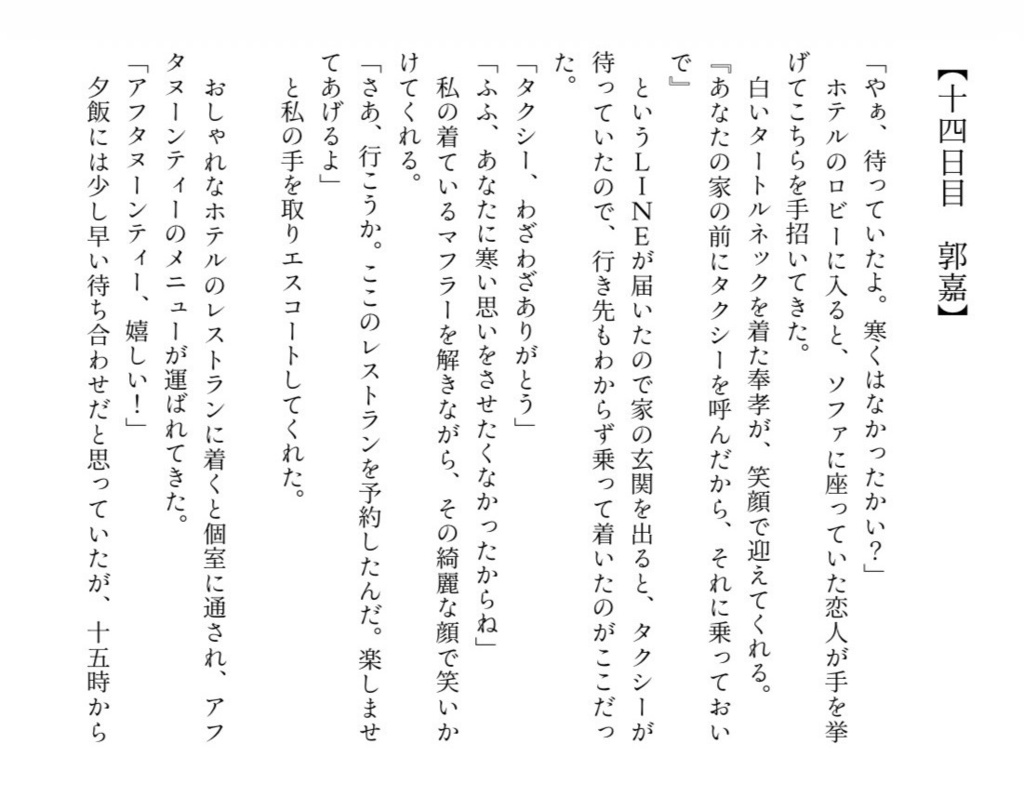 【十四日目　郭嘉】
「やぁ、待っていたよ。寒くはなかったかい？」
　ホテルのロビーに入ると、ソファに座っていた恋人が手を挙
げてこちらを手招いてきた。
　白いタートルネックを着た奉孝が、笑顔で迎えてくれる。
『あなたの家の前にタクシーを呼んだから、それに乗っておい
で』
　というＬＩＮＥが届いたので家の玄関を出ると、タクシーが
待っていたので、行き先もわからず乗って着いたのがここだっ
た。
「タクシー、わざわざありがとう」
「ふふ、あなたに寒い思いをさせたくなかったからね」
　私の着ているマフラーを解きながら、その綺麗な顔で笑いか
けてくれる。
「さあ、行こうか。ここのレストランを予約したんだ。楽しませ
てあげるよ」
　と私の手を取りエスコートしてくれた。
　おしゃれなホテルのレストランに着くと個室に通され、アフ
タヌーンティーのメニューが運ばれてきた。
「アフタヌーンティー、嬉しい！」
　夕飯には少し早い待ち合わせだと思っていたが、十五時から